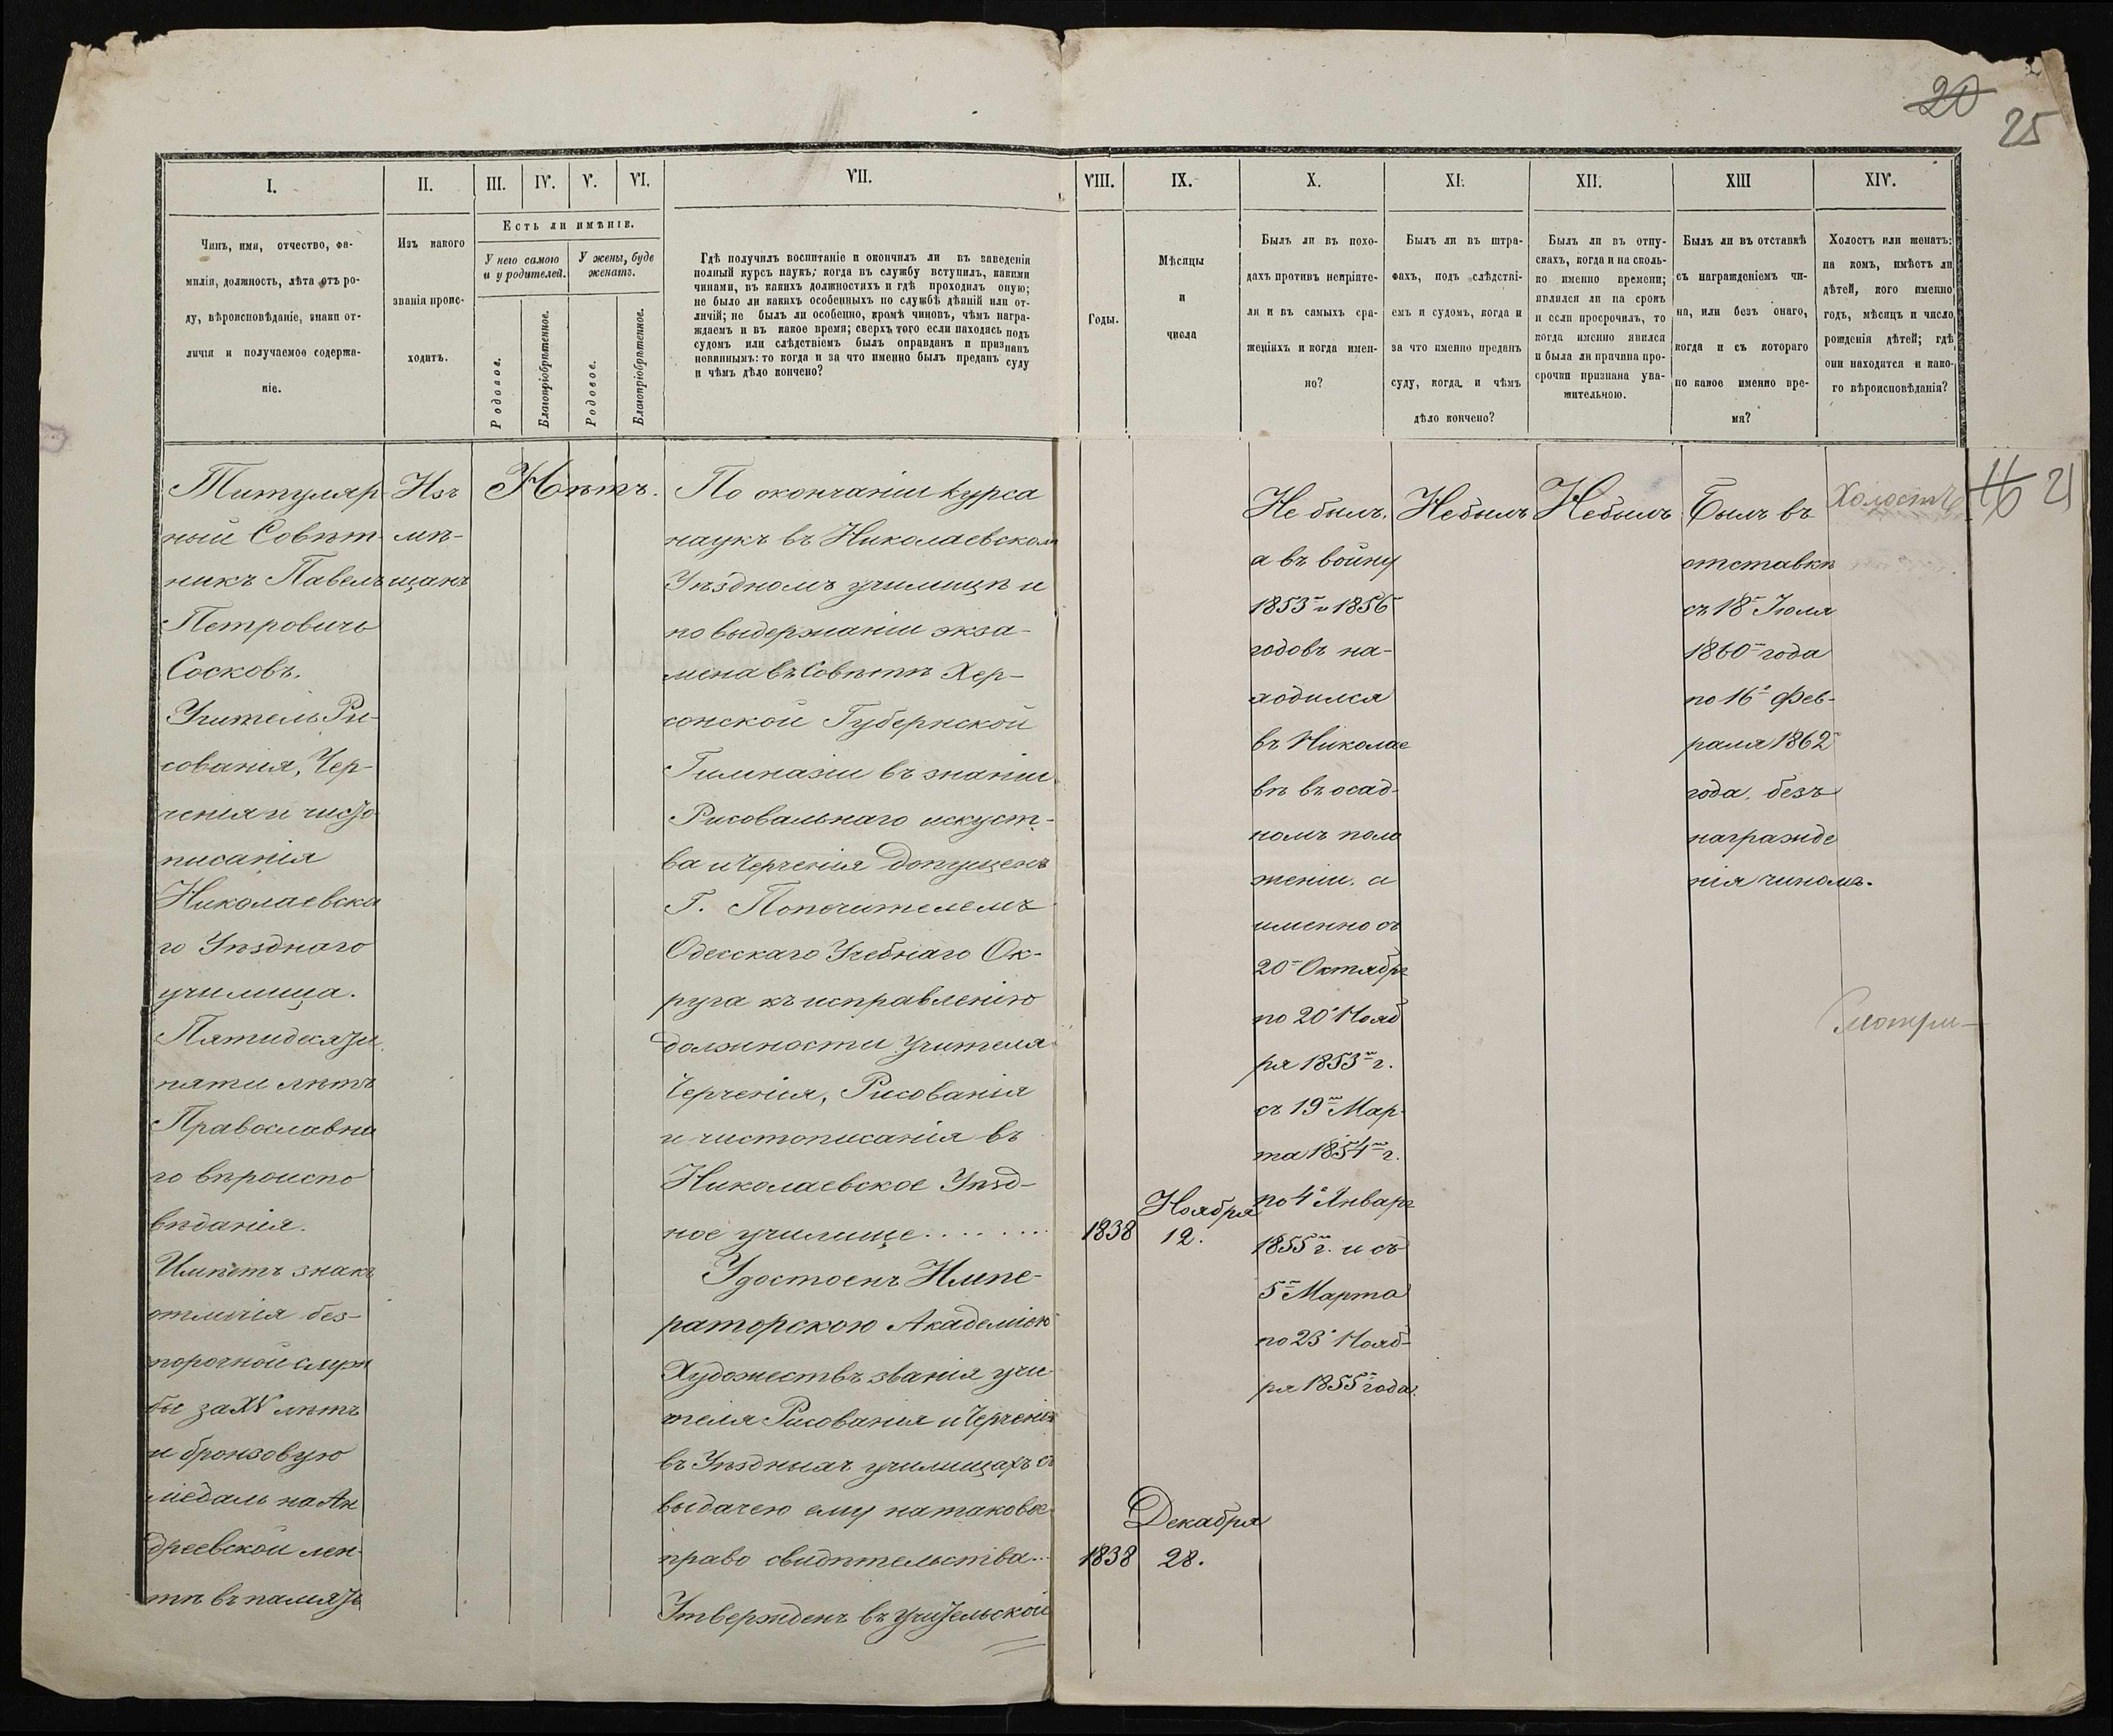 20
25
I.
II.
III.
IV.
V.
VI.
VII.
VIII.
IX.
X.
XI.
XII.
XIII
XIV.
Чинъ, имя, отчество, фа-
милія, должность, лѣта отъ ро-
ду, вѣроисповѣданіе, знаки от-
личія и получаемое содержа-
ніе.
Изъ какого
званія проис-
ходитъ.
Есть ли имѣніе.
У него самого
и у родителей.
У жены, буде
женатъ.
Родовое.
Благопріобрѣтенное.
Родовое.
Благопріобрѣтенное.
Гдѣ получилъ воспитаніе и окончилъ ли въ заведеніи
полный курсъ наукъ; когда въ службу вступилъ, какими
чинами, въ какихъ должностяхъ и гдѣ проходилъ оную;
не было ли какихъ особенныхъ по службѣ дѣяній или от-
личій; не былъ ли особенно, кромѣ чиновъ, чѣмъ награ-
ждаемъ и въ какое время; сверхъ того если находясь подъ
судомъ или слѣдствіемъ былъ оправданъ и признанъ
невиннымъ: то когда и за что именно былъ преданъ суду
и чѣмъ дѣло кончено?
Годы.
Мѣсяцы
и
числа
Былъ ли въ похо-
дахъ противъ непріяте-
ля и въ самыхъ сра-
женіяхъ и когда имен-
но?
Былъ ли въ штра-
фахъ, подъ слѣдстві-
емъ и судомъ, когда и
за что именно преданъ
суду, когда и чѣмъ
дѣло кончено?
Былъ ли въ отпу-
скахъ, когда и на сколь-
ко именно времени;
явился ли на срокъ
и если просрочилъ, то
когда именно явился
и была ли причина про-
срочки признана ува-
жительною.
Былъ ли въ отставкѣ
съ награжденіемъ чи-
на, или безъ онаго,
когда и съ котораго
по какое именно вре-
мя?
Холостъ или женатъ:
на комъ, имѣетъ ли
дѣтей, кого именно
годъ, мѣсяцъ и число
рожденія дѣтей; гдѣ
они находятся и како-
го вѣроисповѣданія?
Титуляр
ный Совѣт-
никъ Павелъ
Петровичъ
Сосковъ.
Учитель Ри-
сованія, Чер-
ченія и чисто
писанія
Николаевска
го Уѣзднаго
училища.
Пятидесяти
пяти лѣтъ
Православна
го вѣроиспо
вѣданія.
Имѣетъ знакъ
отличія без-
порочной служ
бы за XV лѣтъ
и бронзовую
медаль на Ан
дреевской лен-
тѣ въ память
Изъ
мѣ-
щанъ
Нѣтъ.
По окончаніи курса
наукъ въ Николаевскомъ
Уѣздномъ училищѣ и
по выдержаніи экза-
мена въ Совѣтѣ Хер-
сонской Губернской
Гимназіи въ знаніи
Рисовальнаго искуст-
ва и Черченія допущенъ
Г. Попечителемъ
Одесскаго Учебнаго Ок-
руга къ исправленію
должности Учителя
Черченія, Рисованія
и чистописанія въ
Николаевское Уѣзд-
ное училище........
Удостоенъ Импе-
раторскою Академіею
Художествъ званія учи
теля Рисованія и Черченія
въ Уѣздныхъ училищахъ съ
выдачею ему на таковое
право свидѣтельства...
Утвержденъ въ учительской
1838
Ноября
12.
1838
Декабря
28.
Не былъ,
а въ войну
1853 и 1856
годовъ на-
ходился
въ Николае
вѣ въ осад-
номъ поло
женіи, а
именно съ
20 Октября
по 20 Нояб
ря 1853 г.
съ 19 Мар-
та 1854 г.
по 4 Января
1855 г. и съ
5 Марта
по 23 Нояб-
ря 1855 года.
Не былъ
Не былъ
Былъ въ
отставкѣ
съ 18 Іюля
1860 года
по 16 Фев-
раля 1862
года, безъ
награжде
нія чиномъ.
Холостъ
16 21